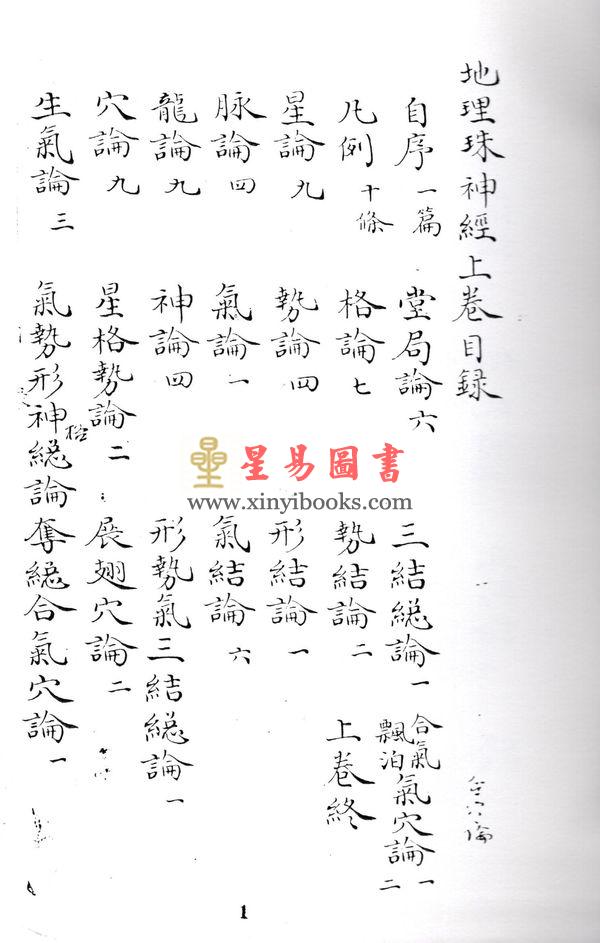 地理珠神經上卷目録
自序 一篇
凡例 十條
星論 九
脉論 四
龍論 九
穴論 九
生氣論 三
堂局論 六
格論 七
勢論 四
氣論 一
神論 四
星格勢論 二
氣勢形神緫論
格
三結緫論 一
勢結論 二
形結論 一
氣結論 六
形勢氣三結緫論 一
展翅穴論 二
奪緫合氣穴論 一
合氣
飄泊
氣穴論 一
二
上卷終
星易圖書
www.xinyibooks.com
1